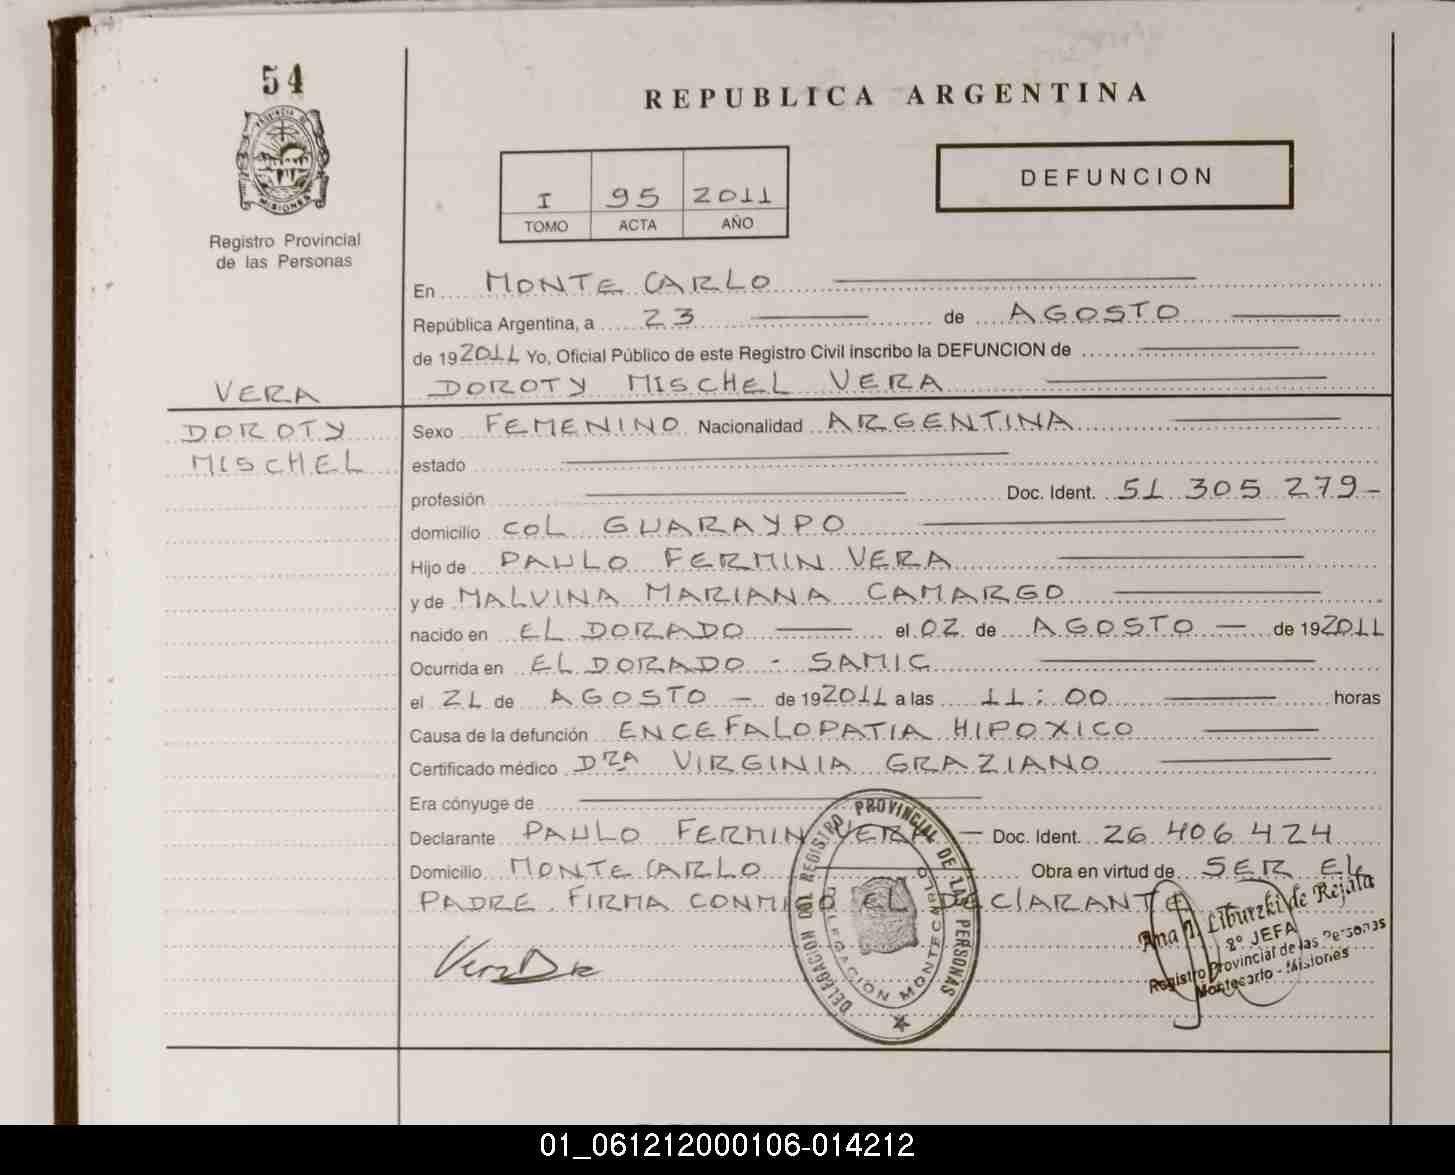 54
PROVINCIA DE
MISIONES
Registro Provincial
de las Personas
REPUBLICA ARGENTINA
I 95 2011
TOMO ACTA AÑO
DEFUNCION
En MONTE CARLO
República Argentina, a 23 de AGOSTO
de 192011 Yo, Oficial Público de este Registro Civil inscribo la DEFUNCION de
VERA DOROTY MISCHEL VERA
DOROTY Sexo FEMENINO Nacionalidad ARGENTINA
MISCHEL estado
profesión Doc. Ident. 51 305 279-
domicilio COL GUARAYPO
Hijo de PAULO FERMIN VERA
y de MALVINA MARIANA CAMARGO
nacido en EL DORADO el 02 de AGOSTO de 192011
Ocurrida en EL DORADO - SAMIC
el 21 de AGOSTO - de 192011 a las 11:00 horas
Causa de la defunción ENCEFALOPATIA HIPOXICO
Certificado médico DRA VIRGINIA GRAZIANO
Era cónyuge de
Declarante PAULO FERMIN VERA - Doc. Ident. 26 406 424
Domicilio MONTE CARLO Obra en virtud de SER EL
PADRE. FIRMA CONMIGO EL DECLARANTE
DELEGACION DEL REGISTRO PROVINCIAL DE LAS PERSONAS
DELEGACION MONTECARLO
Ana Liburzki de Rejala
2º JEFA
Registro Provincial de las Personas
Montecarlo - Misiones
01_061212000106-014212